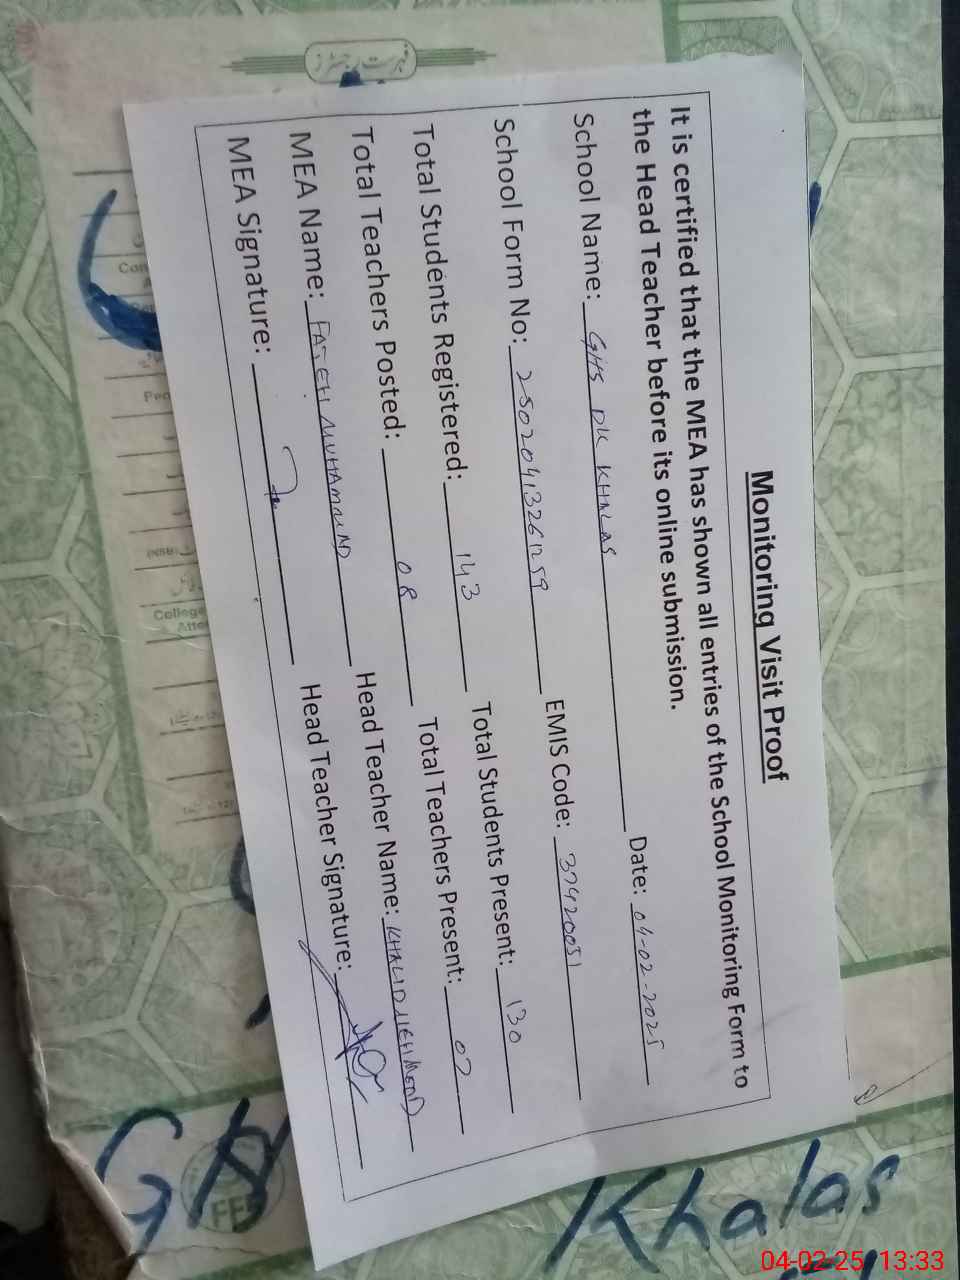 Monitoring Visit Proof
It is certified that the MEA has shown all entries of the School Monitoring Form to
the Head Teacher before its online submission.
School Name: GHS DK KHALAS Date: 04-02-2025
School Form No: 25020413261259 EMIS Code: 37420051
Total Students Registered: 143 Total Students Present: 130
Total Teachers Posted: 08 Total Teachers Present: 07
MEA Name: FATEH MUHAMMAD Head Teacher Name: KHALID MEHMOOD
MEA Signature: Head Teacher Signature:
Khalas
04-02-25 13:33